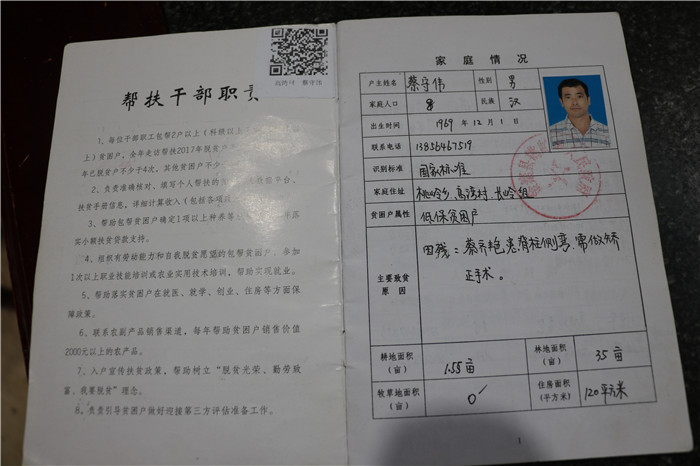 帮扶干部职责
1、每位干部职工包帮2户以上(科级以上
上)贫困户,全年走访帮扶2017年脱贫户
年已脱贫户不少于4次,其他贫困户不少
2、负责准确核对、填写个人帮扶的
扶贫手册信息,详细计算收入(包括各项
3、帮助包帮贫困户确定1项以上种养
实小额扶贫贷款支持。
4、组织有劳动能力和自我脱贫愿望的包帮贫困户,参加
1次以上职业技能培训或农业实用技术培训,帮助实现就业。
5、帮助落实贫困户在就医、就学、创业、住房等方面保
障政策。
6、联系农副产品销售渠道,每年帮助贫困户销售价值
2000元以上的农产品。
7、入户宣传扶贫政策,帮助树立“脱贫光荣、勤劳致
富、我要脱贫”理念。
8、负责引导贫困户做好迎接第三方评估准备工作。
家庭情况
户主姓名 蔡守伟 性别 男
家庭人口 8 民族 汉
出生时间 1969年12月1日
联系电话 13856467519
识别标准 国家标准
家庭住址 桃岭乡、高湾村、长岭组
贫困户属性 低保贫困户
主要致贫原因 因残:蔡齐艳患脊柱侧弯,需做矫
正手术。
耕地面积(亩) 1.55亩 林地面积(亩) 35亩
牧草地面积(亩) 0 住房面积(平方米) 120平方米
1